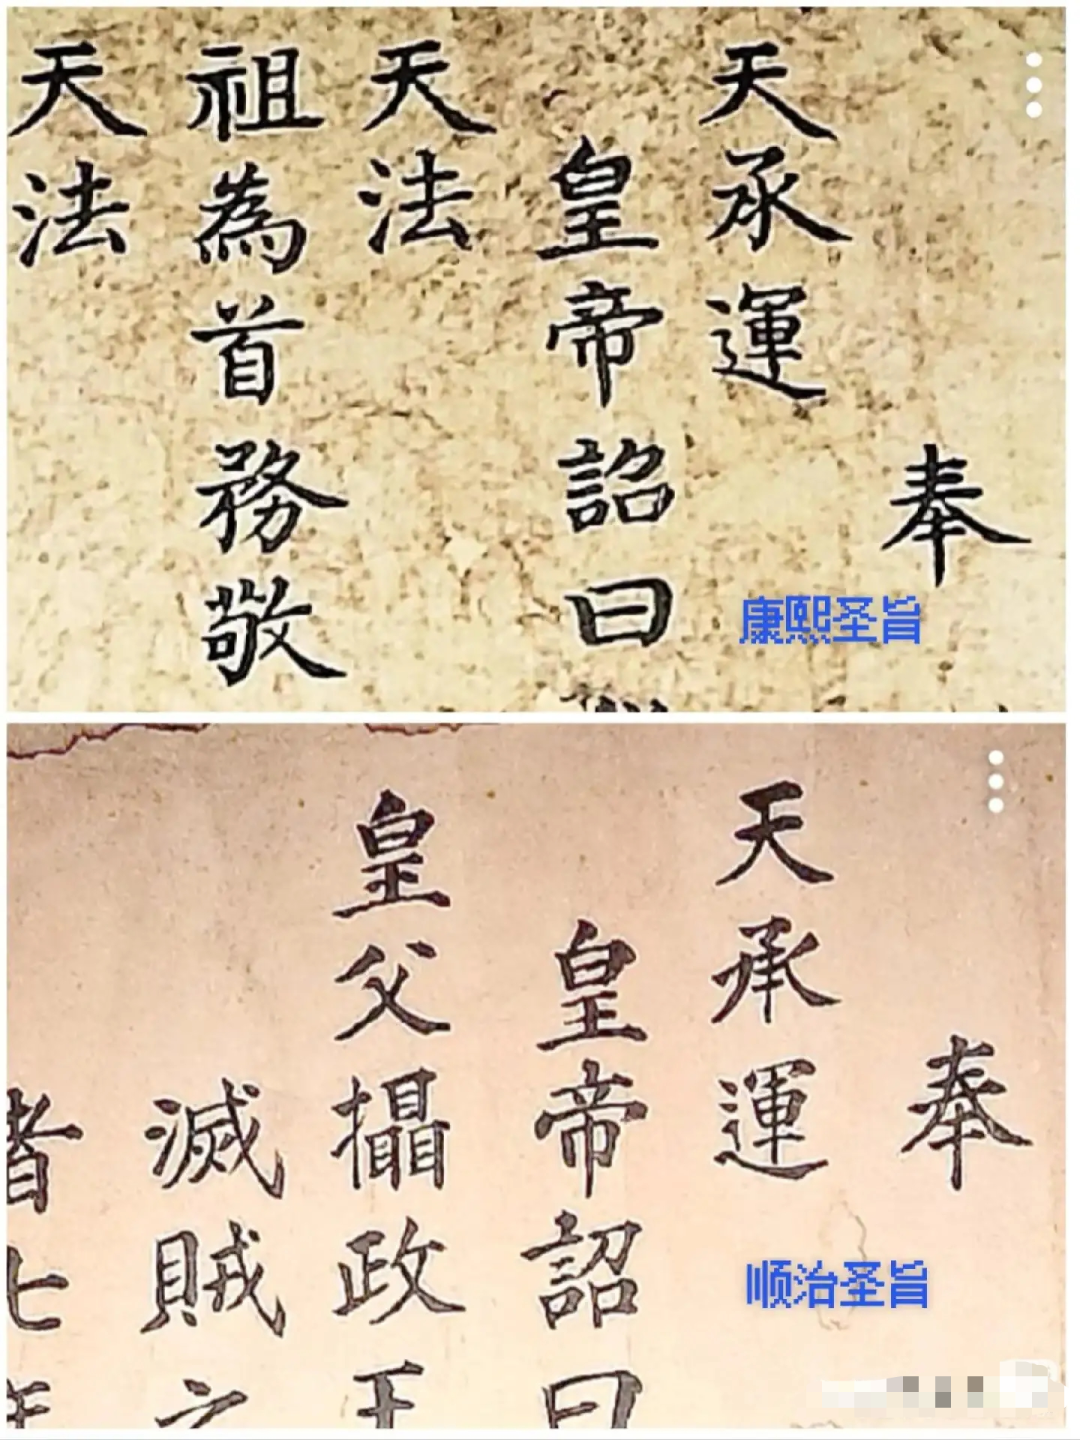 奉
天承運
皇帝詔曰
天法
祖為首務敬
天法
康熙圣旨
奉
天承運
皇帝詔曰
皇父攝政王
滅賊之
者七
顺治圣旨